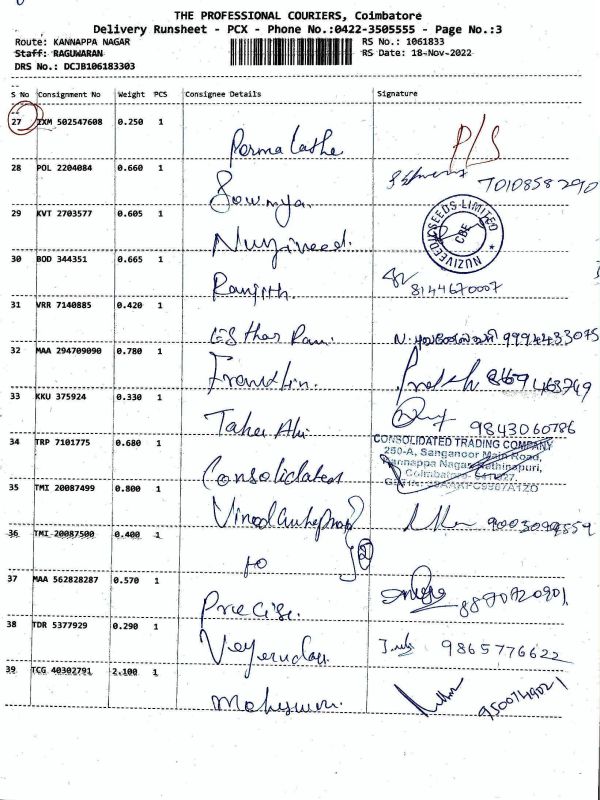 THE PROFESSIONAL COURIERS, Coimbatore
Delivery Runsheet - PCX - Phone No.:0422-3505555 - Page No.:3
Route: KANNAPPA NAGAR RS No.: 1061833
Staff: RAGUWARAN RS Date: 18-Nov-2022
DRS No.: DCJB106183303
S No Consignment No Weight PCS Consignee Details Signature
27 IXM 502547608 0.250 1 P/S
28 POL 2204084 0.660 1 Sowmya. 7010858290
29 KVT 2703577 0.605 1 Nuziveed. NUZIVEEDU SEEDS LIMITED CBE
30 BOD 344351 0.665 1 Ranjith. 8144670007
31 VRR 7140885 0.420 1 Esther Rani. 9994433075
32 MAA 294709090 0.780 1 Franklin.
33 KKU 375924 0.330 1 Taher Ali 9843060786
34 TRP 7101775 0.680 1 Consolidated
CONSOLIDATED TRADING COMPANY
250-A, Sanganoor Main Road,
Kannappa Nagar, Rathinapuri,
Coimbatore- 641027.
35 TMI 20087499 0.800 1
36 TMI 20087500 0.400 1 to
37 MAA 562828287 0.570 1 Precise.
38 TDR 5377929 0.290 1 9865776622
39 TCG 40302791 2.100 1 9500749021